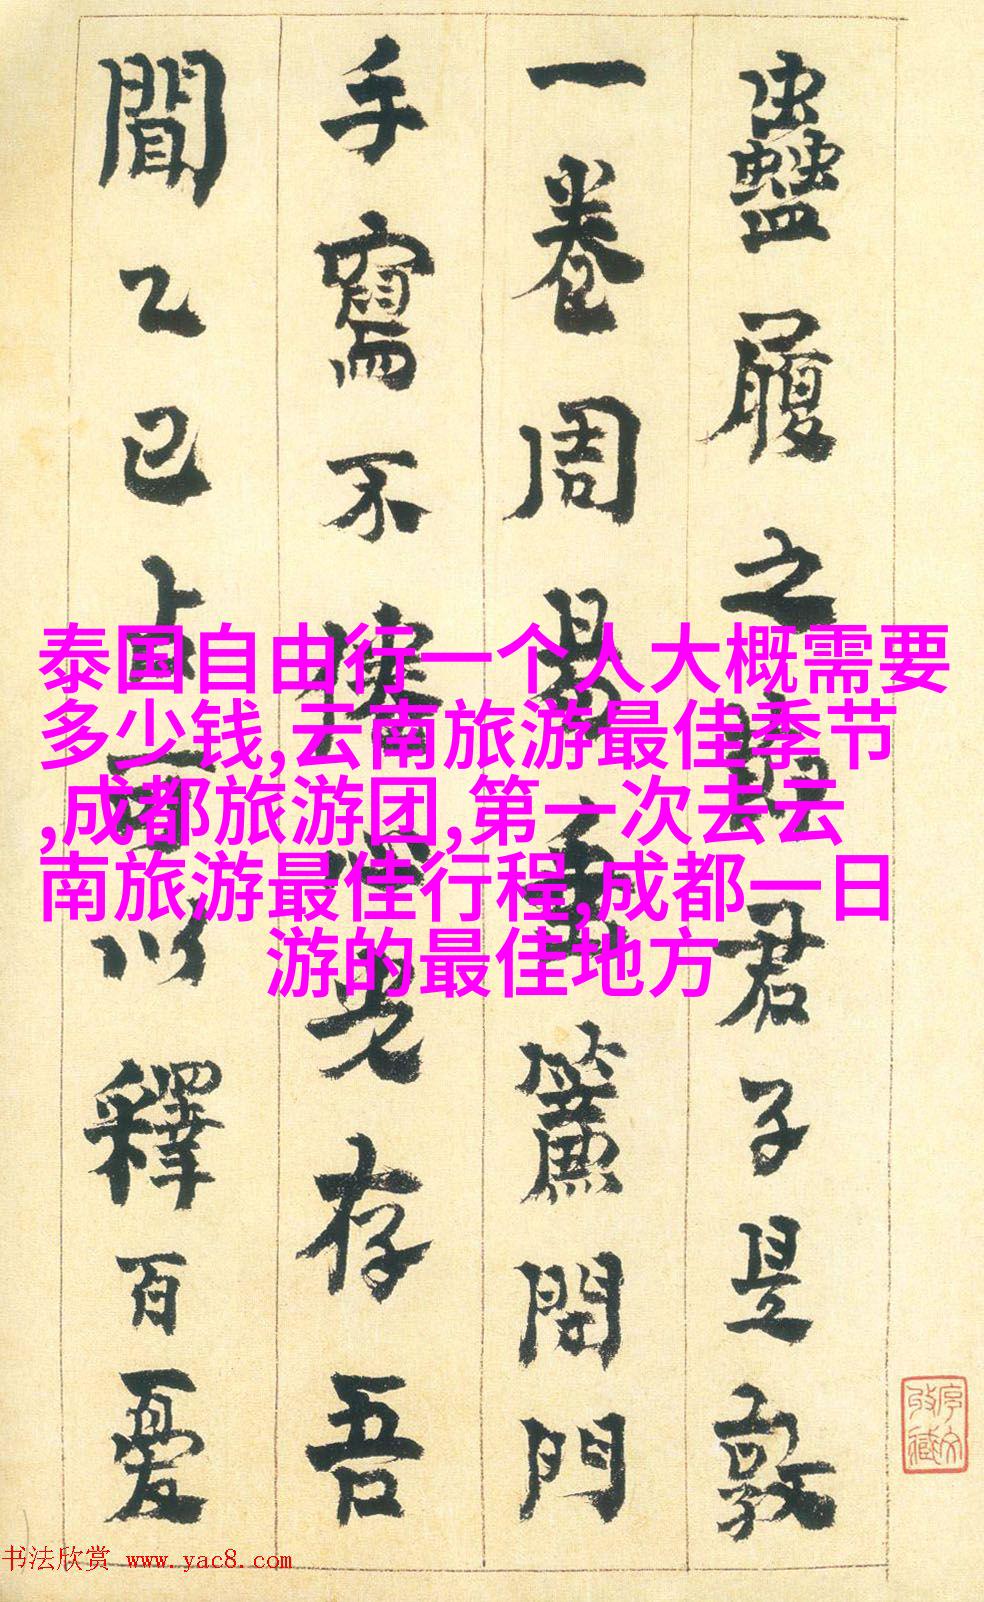 蠱履之君子是敦
一卷周易垂簾閉門
手寫不存吾
聞乙巳占可以釋百憂
泰国自由行一个人大概需要
多少钱,云南旅游最佳季节
,成都旅游团,第一次去云
南旅游最佳行程,成都一日
游的最佳地方
书法欣赏 www.yac8.com